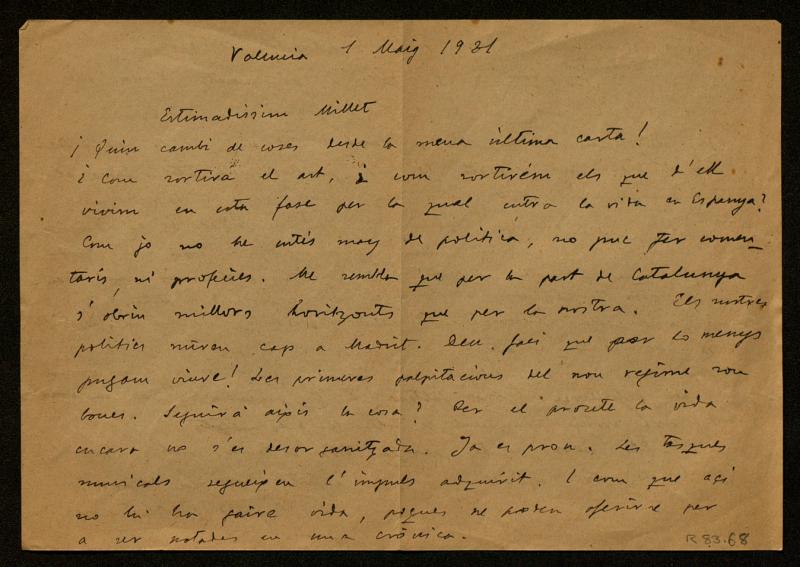 Valencia 1 Maig 1931
Estimadissim Millet
¡Quin cambi de coses desde la meua última carta!
¿Com sortirá el art, i com sortirém els que d'ell
vivim en esta fase per la qual entra la vida en Espanya?
Com jo no he entés may de politica, no puc fer comen-
taris, ni profecíes. Me sembla que per la part de Catalunya
s'obrin millors horitzonts que per la nostra. Els nostres
politics miren cap a Madrit. Deu faci que per lo menys
pugam viure! Les primeres palpitacions del nou regime son
bones. Seguirá aixís la cosa? Per el present la vida
encara no s'es desorganitzada. Ja es prou. Les tasques
musicals segueixen l'impuls adquirit. I com que açí
no hi ha gaire vida, poques ne poden oferirse per
a ser notades en una crónica.
R 83.68